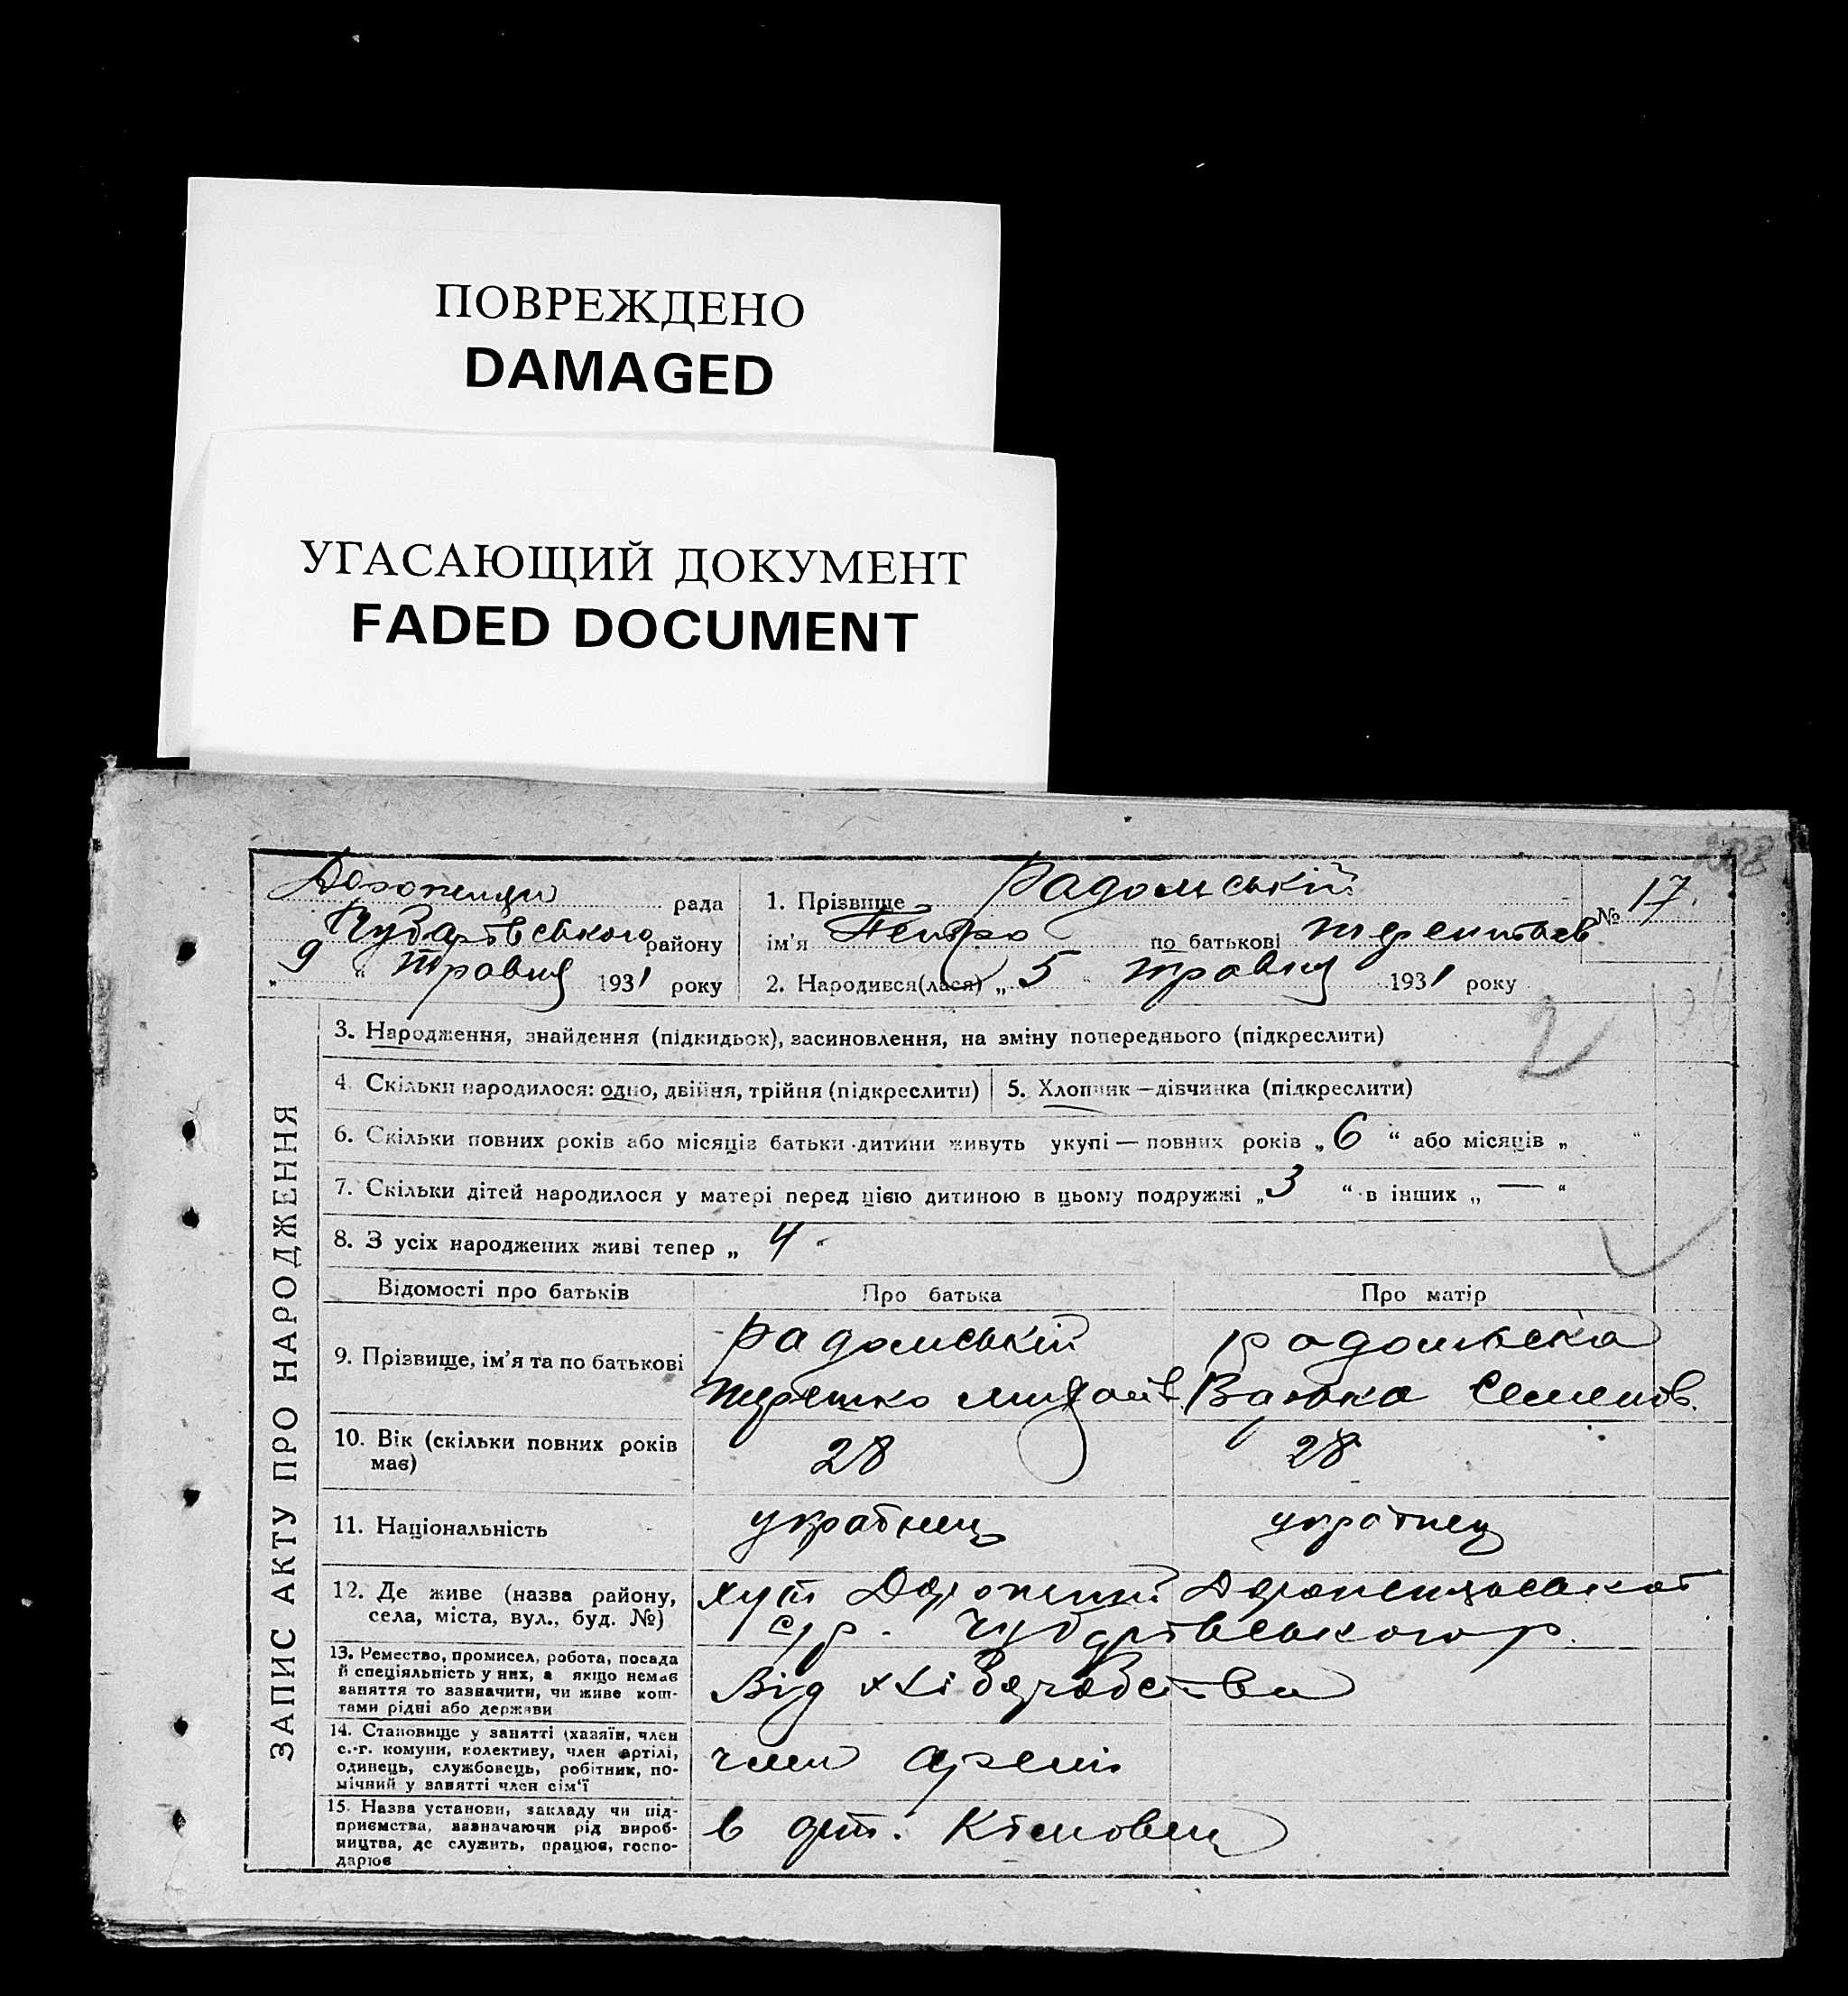 ПОВРЕЖДЕНО
DAMAGED
УГАСАЮЩИЙ ДОКУМЕНТ
FADED DOCUMENT
ЗАПИС АКТУ ПРО НАРОДЖЕННЯ
рада
району
„ 9 “ травня 1931 року
1. Прізвище Радомській
№ 17.
ім'я Петро по батькові
2. Народився(лася) „ 5 “ травня 1931 року
2
3. Народження, знайдення (підкидьок), засиновлення, на зміну попереднього (підкреслити)
4. Скільки народилося: одно, двійня, трійня (підкреслити)
5. Хлопчик — дівчинка (підкреслити)
6. Скільки повних років або місяців батьки дитини живуть укупі — повних років „ 6 “ або місяців „ “
7. Скільки дітей народилося у матері перед цією дитиною в цьому подружжі „ 3 “ в інших „ — “
8. З усіх народжених живі тепер „ 4 “
Відомості про батьків
Про батька
Про матір
9. Прізвище, ім'я та по батькові
Радомській
Радомська
Семенов.
10. Вік (скільки повних років
має)
28
28
11. Національність
українец
українец
12. Де живе (назва району,
села, міста, вул., буд. №)
хут
с/р.
13. Ремество, промисел, робота, посада
й спеціяльність у них, а якщо немає
заняття то зазначити, чи живе кош-
тами рідні або держави
Від хліборобства
14. Становище у занятті (хазяїн, член
с.-г. комуни, колективу, член артілі,
одинець, службовець, робітник, по-
мічний у занятті член сім'ї
член
15. Назва установи, закладу чи під-
приємства, зазначаючи рід вироб-
ництва, де служить, працює, госпо-
дарює
в арт.